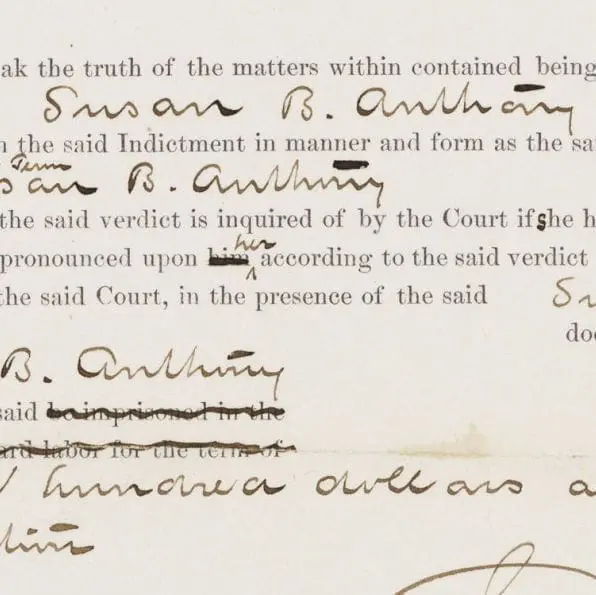 ak the truth of the matters within contained being
Susan B. Anthony
the said Indictment in manner and form as the sa
Term
san B. Anthony
the said verdict is inquired of by the Court if she h
her
pronounced upon him according to the said verdict
the said Court, in the presence of the said Su
doe
B. Anthony
said be imprisoned in the
ard labor for the term of
hundred dollars a